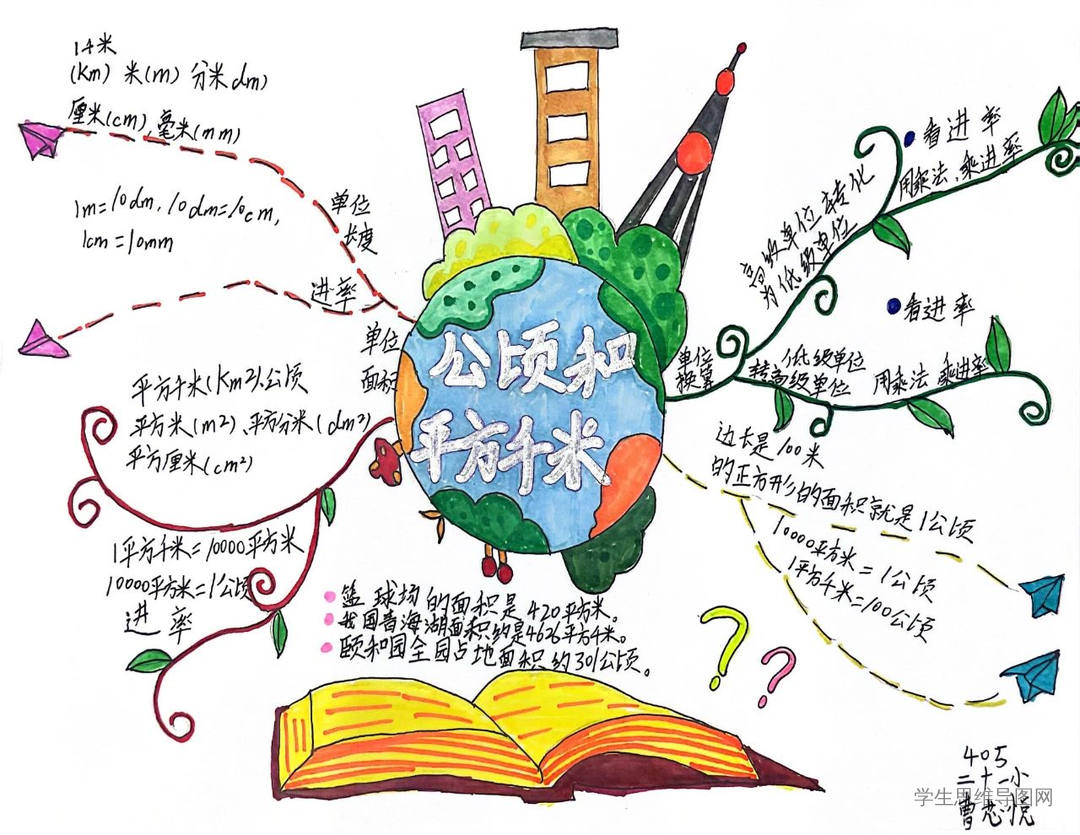 14米
(Km) 米(m) 分米dm)
厘米(cm)、毫米(mm)
1m=10dm, 10dm=10cm,
1cm=10mm
单位
长度
进率
单位
面积
平方千米(Km2)、公顷
平方米(m2)、平方分米(dm2)
平方厘米(cm²)
1平方千米=10000平方米
10000平方米=1公顷
进率
公顷和
平方千米
单位
换算
高级单位转化
为低级单位
看进率
用乘法、乘进率
低级单位
转高级单位
看进率
用乘法 乘进率
边长是100米
的正方形的面积就是1公顷
10000平方米=1公顷
1平方千米=100公顷
篮球场的面积是420平方米。
我国青海湖面积约是4626平方千米。
颐和园全园占地面积约301公顷。
? ?
405
二十一小
学生思维导图网